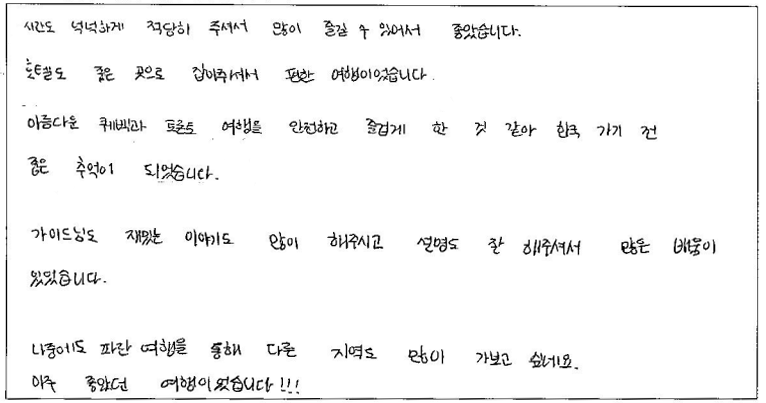 시간도 넉넉하게 적당히 주셔서 많이 즐길 수 있어서 좋았습니다.
호텔도 좋은 곳으로 잡아주셔서 편한 여행이었습니다.
아름다운 퀘벡과 토론토 여행을 안전하고 즐겁게 한 것 같아 한국 가기 전
좋은 추억이 되었습니다.
가이드님도 재밌는 이야기도 많이 해주시고 설명도 잘 해주셔서 많은 배움이
있었습니다.
나중에도 파란 여행을 통해 다른 지역도 많이 가보고 싶네요.
아주 좋았던 여행이었습니다!!!